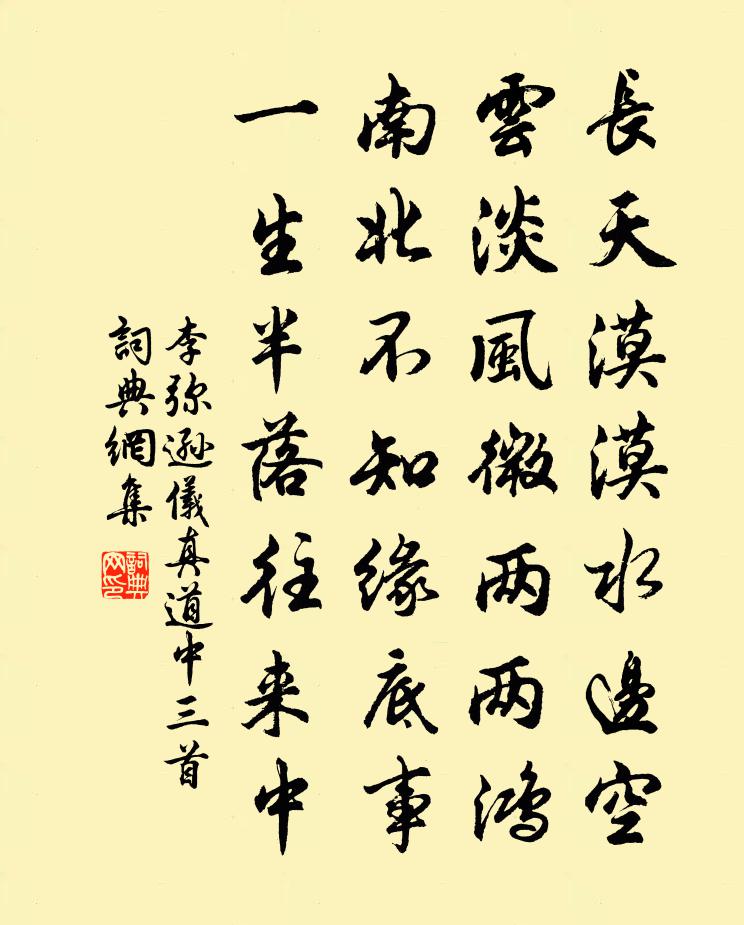 長天漠漠水邊空
雲淡風微两两鴻
南北不知緣底事
一生半落往来中
李弥遜儀真道中三首
詞典網集
詞典网印